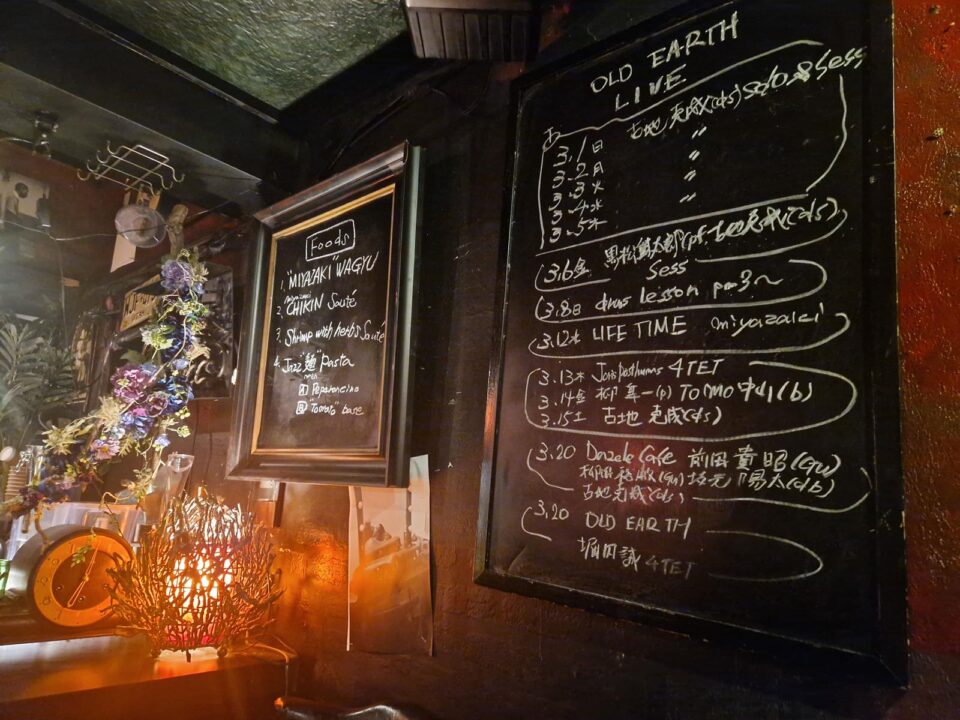 Foods
1. "MIYAZAKI" WAGYU
2. CHIKIN Sauté
3. Shrimp with herbs Sauté
4. Jazz "麺" pasta
Peperoncino
"Tomato" base
OLD EARTH
LIVE
古地克成(ds) solo & Sess
3.1日 〃
3.2月 〃
3.3火 〃
3.4水 〃
3.5木
3.6金 黒松 古地克成(ds)
Sess
3.8日 drums lesson pm3～
3.12水 LIFE TIME miyazaki
3.13木 4TET
3.14金 Tomo中山(b)
3.15土 古地克成(ds)
3.20 Cafe 前田
古地克成(ds)
3.20 OLD EARTH
堀田誠 4TET